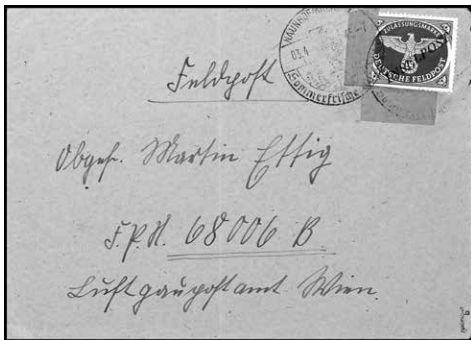 NAUNHOF
03.4
Sommerfrische
ZULASSUNGSMARKE
DEUTSCHE FELDPOST
INSELPOST
Feldpost
Obgefr. Martin Ettig
F.P.N. 68006 B
Luftgaupostamt Wien.